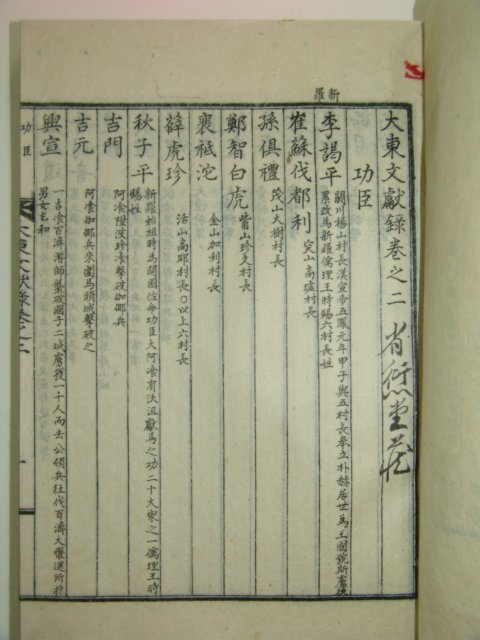 大東文獻錄卷之二
功臣
新羅
李謁平 關川楊山村長漢宣帝五鳳元年甲子與五村長奉立朴赫居世爲王國號斯盧後
累改爲新羅儒理王時賜六村長姓
崔蘇伐都利 突山高墟村長
孫俱禮 茂山大樹村長
鄭智白虎 觜山珍支村長
裵祗沱 金山加利村長
薛虎珍 活山高耶村長〇以上六村長
秋子平 新羅始祖時爲開國佐命功臣大阿飡有沃沮獻馬之功二十大家之一儒理王時
賜姓
吉門 阿飡陞波珍飡擊破伽倻兵
吉元 阿飡伽倻兵來圍馬頭城擊破之
興宣 一吉飡百濟潛師襲破國西二城虜獲一千人而去公領兵往伐百濟大懼還所掠
男女乞和
功臣
大東文獻錄卷之二
一